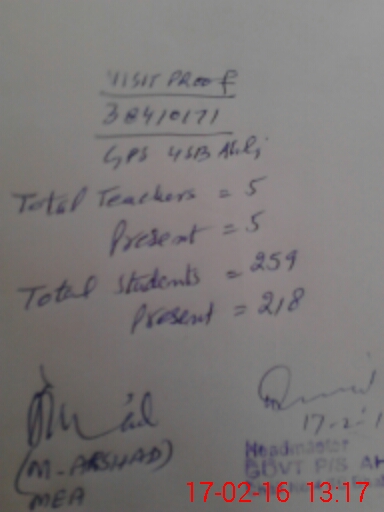 VISIT PROOF
38410171
GPS 45B Ahli
Total Teachers = 5
Present = 5
Total Students = 259
Present = 218
17-2-1
(M-ARSHAD)
MEA
Headmaster
GOVT P/S AH
17-02-16 13:17